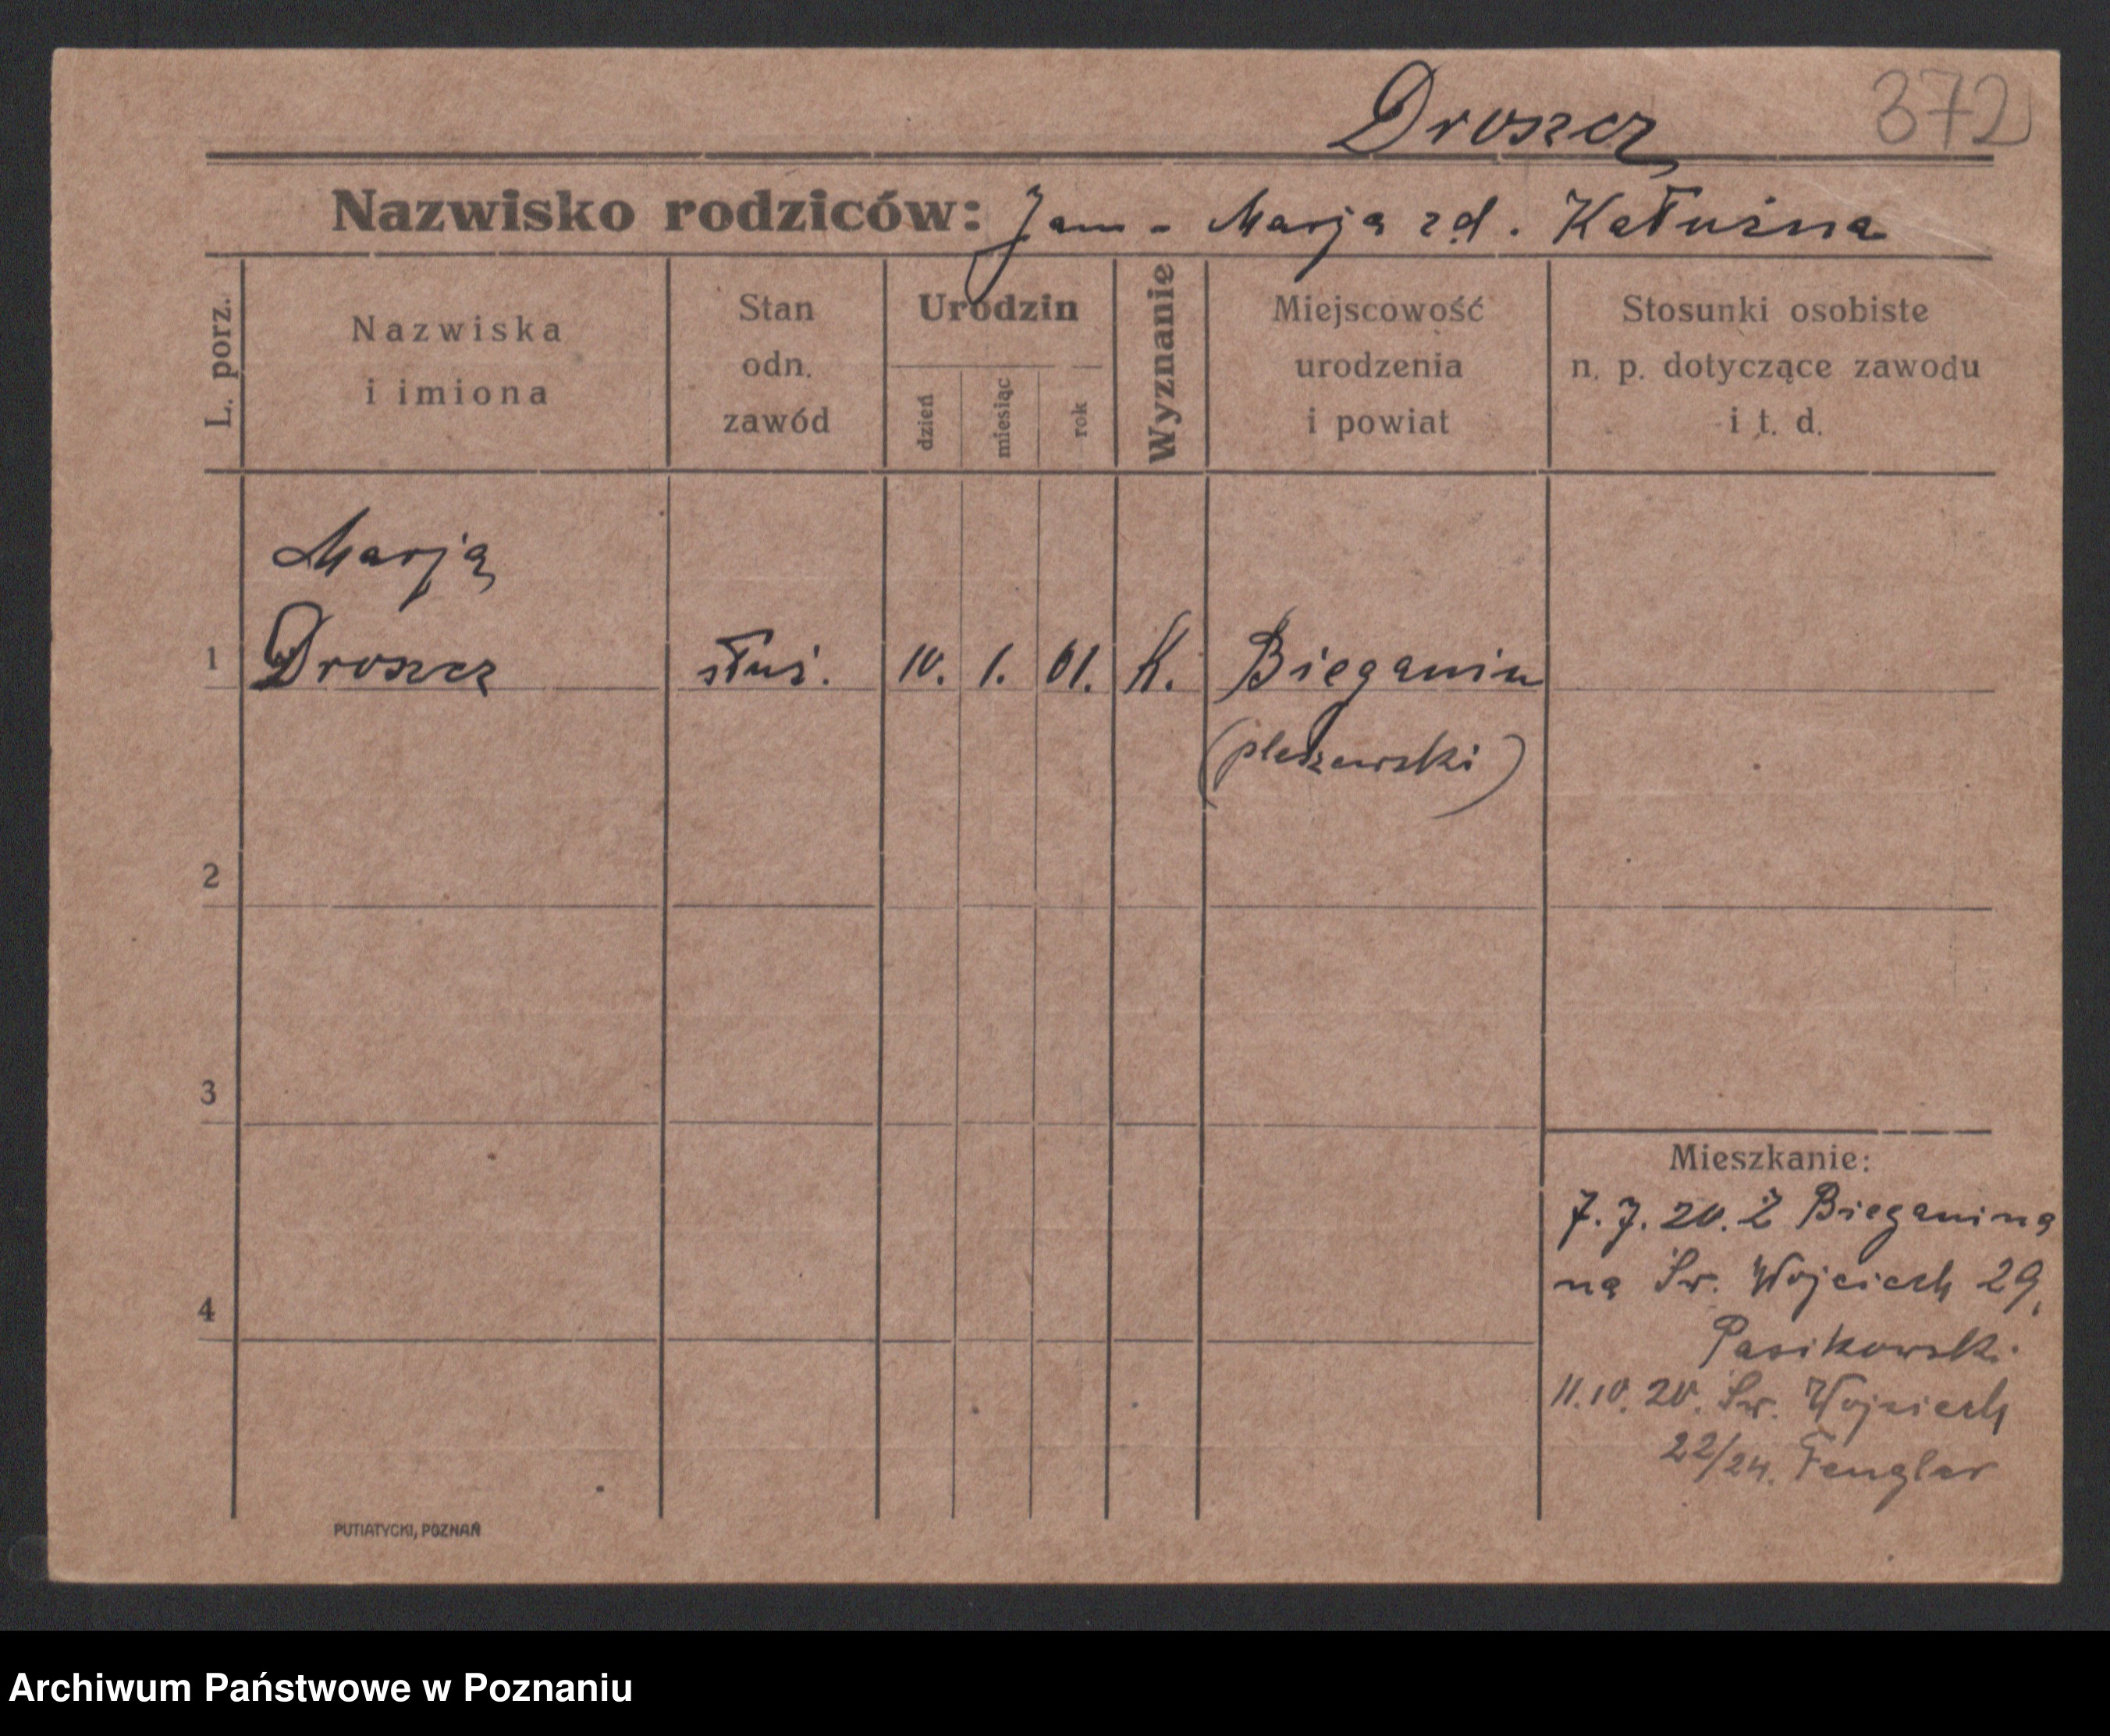 Droszcz 372
Nazwisko rodziców: Jan - Marja zd. Kałużna
L. porz.
Nazwiska
i imiona
Stan
odn.
zawód
Urodzin
dzień
miesiąc
rok
Wyznanie
Miejscowość
urodzenia
i powiat
Stosunki osobiste
n. p. dotyczące zawodu
i t. d.
Marja
1 Droszcz służ. 10. 1. 01. K. Bieganin
(pleszewski)
2
3
4
Mieszkanie:
7. 7. 20. Z Bieganina
na Św. Wojciech 29,
Pasikowski.
11. 10. 20. Św. Wojciech
22/24. Fengler
PUTIATYCKI, POZNAŃ
Archiwum Państwowe w Poznaniu